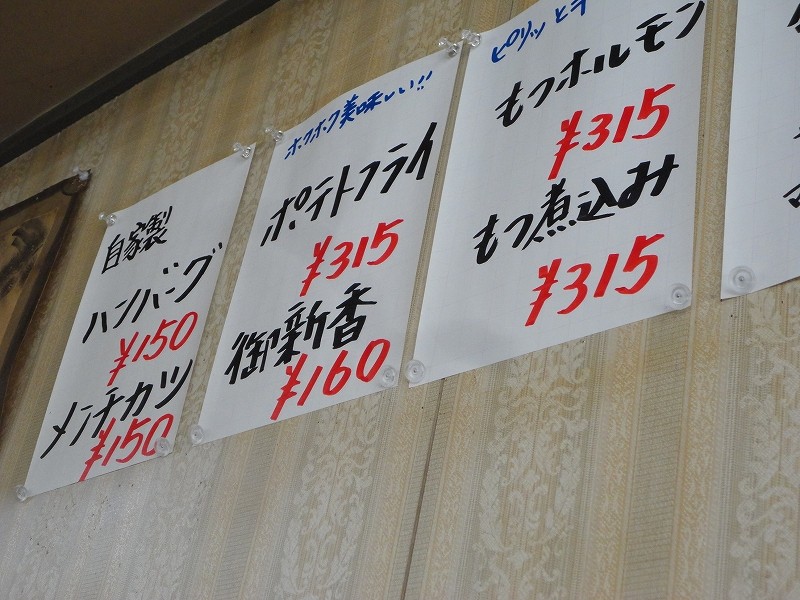 自家製
ハンバーグ
¥150
メンチカツ
¥150
ホクホク美味しい!!
ポテトフライ
¥315
御新香
¥160
ピリッと辛
もつホルモン
¥315
もつ煮込み
¥315